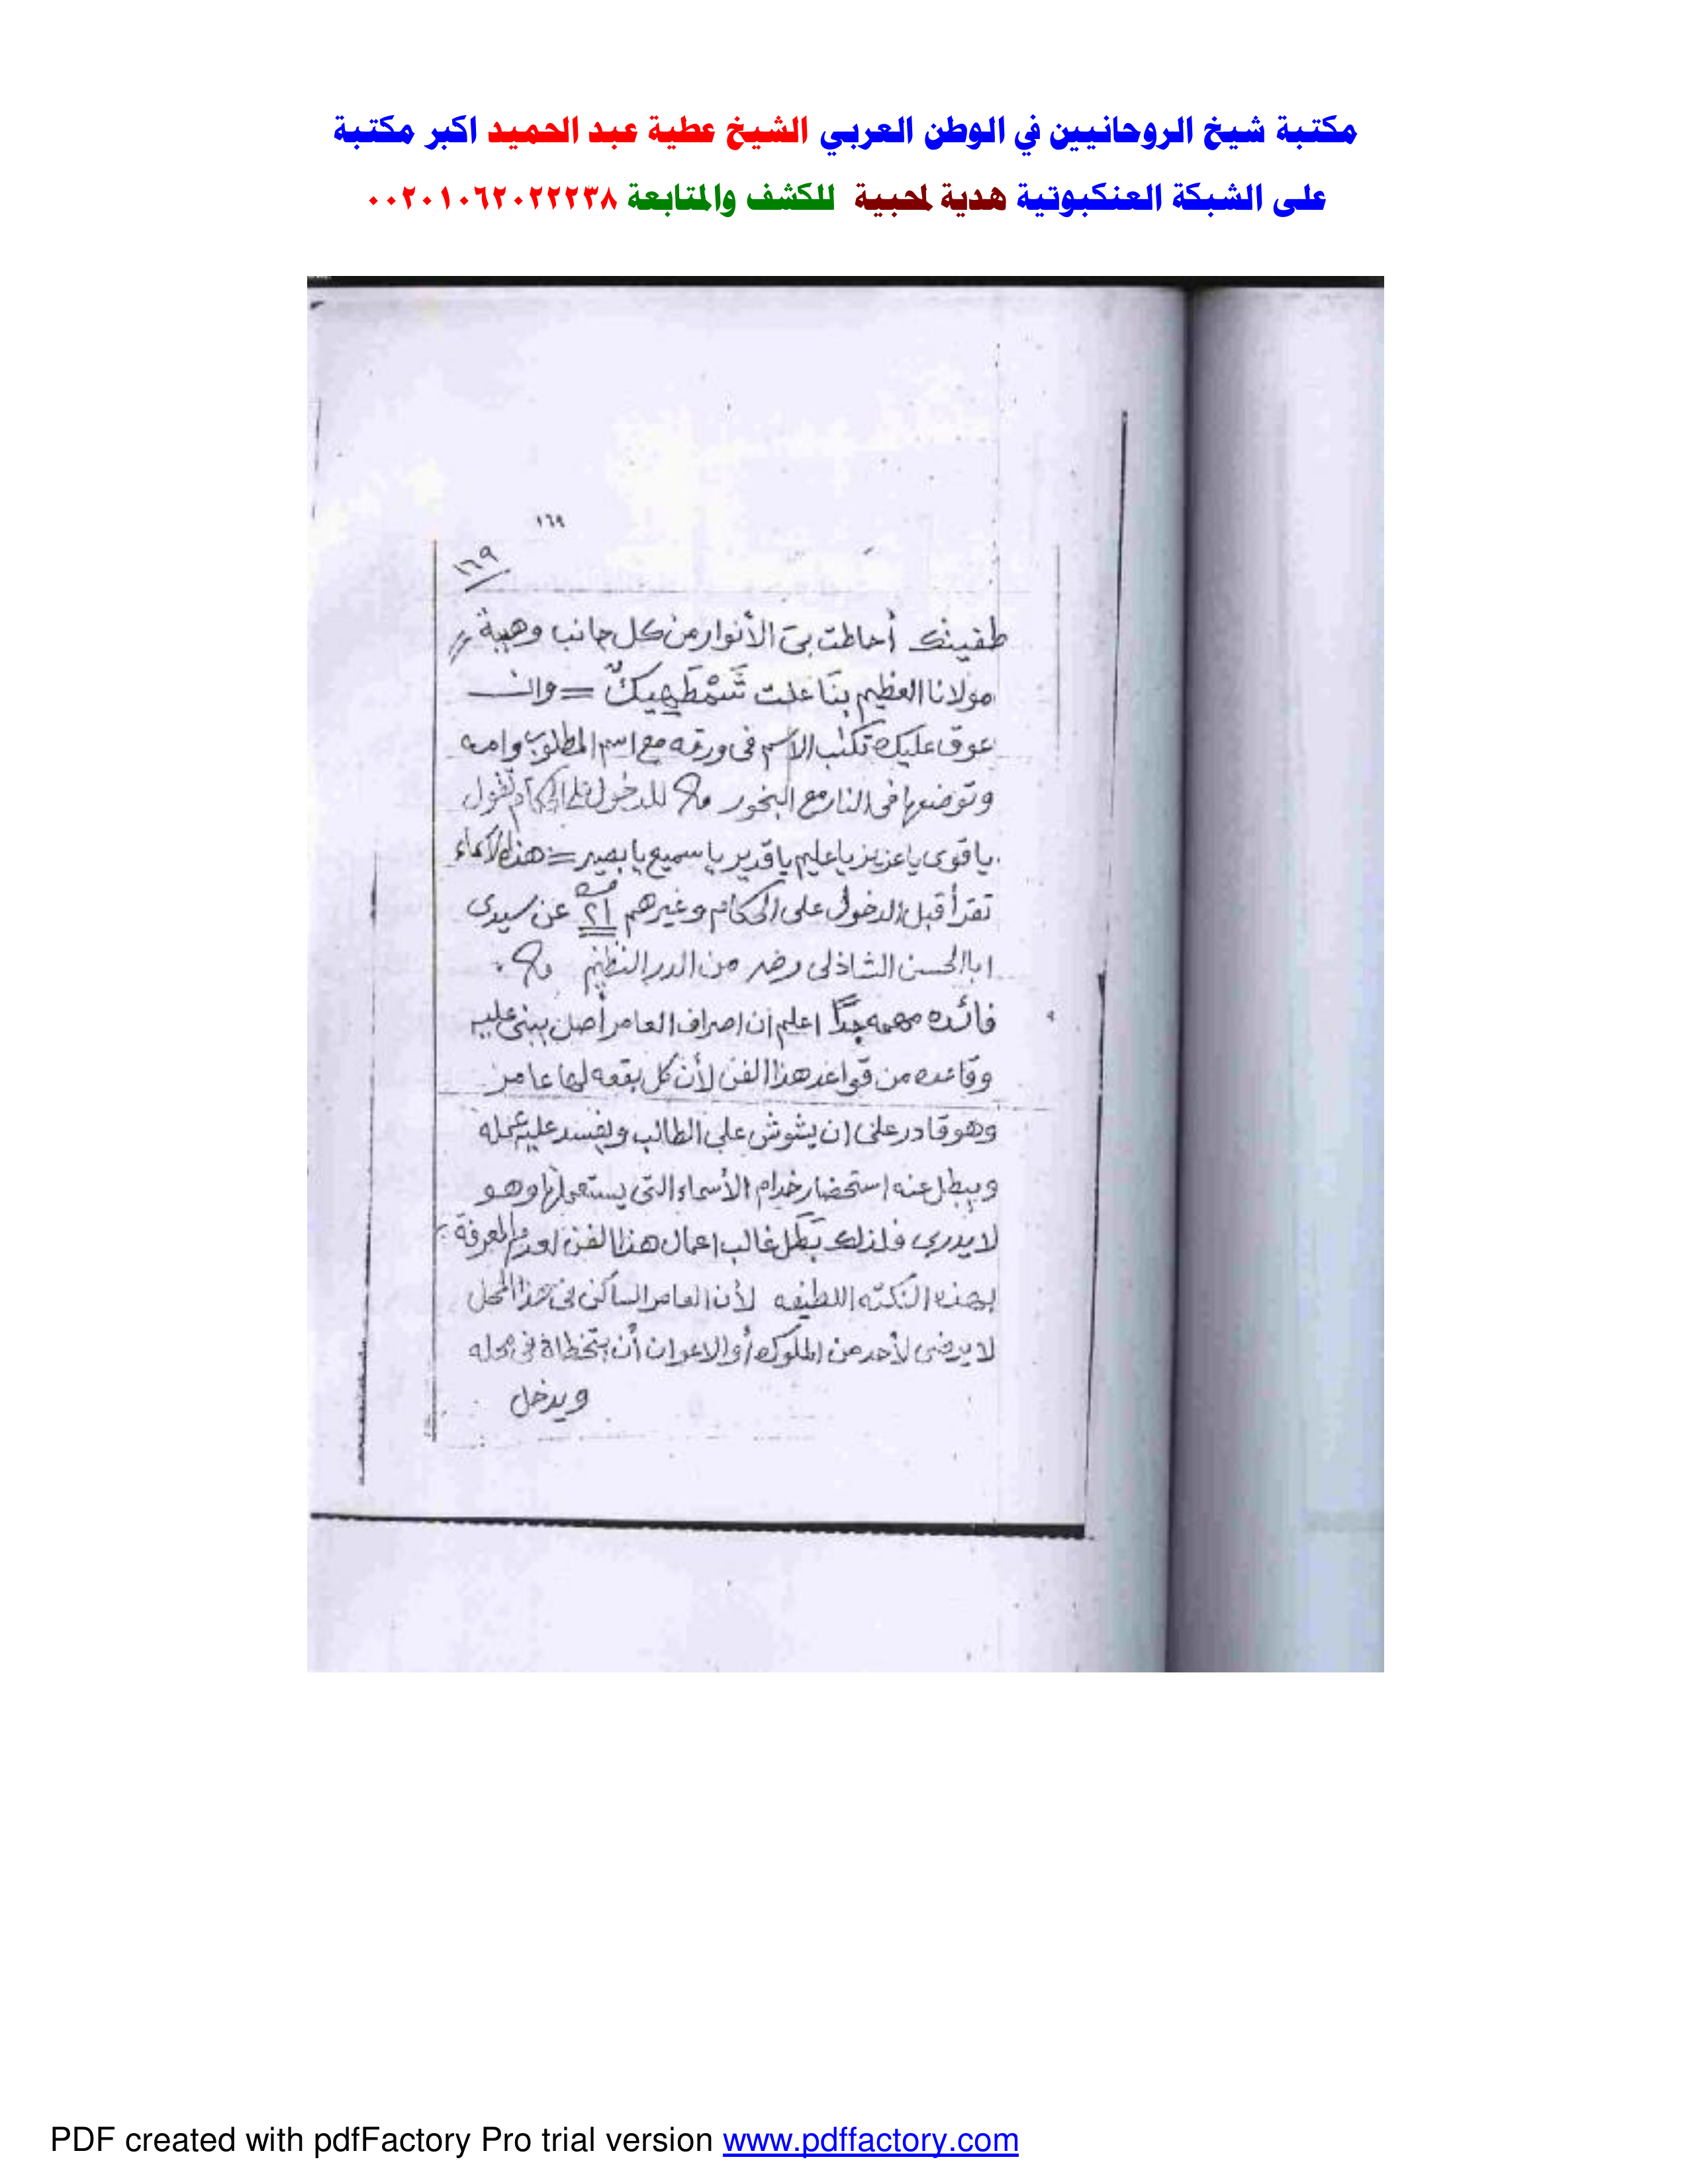 مكتبة شيخ الروحانيين في الوطن العربي الشيخ عطية عبد الحميد اكبر مكتبة
على الشبكة العنكبوتية هدية لمحبية للكشف والمتابعة ٠٠٢٠١٠٦٢٠٢٢٢٣٨
١٦٩
١٦٩
أحاطت بي الأنوار من كل جانب وهيبة
مولانا العظيم بنا علت = وان
عوق عليك تكتب الاسم فى ورقه مع اسم المطلوب وامه
وتوضعها فى النار مع البخور للدخول على الحكام تقول
يا قوى يا عزيز يا عليم يا قدير يا سميع يا بصير = هذه الأسماء
تقرأ قبل الدخول على الحكام وغيرهم عن سيدى
ابا الحسن الشاذلى رضى من الدر النظيم
فائده مهمه جدًا اعلم ان اصراف العامر أصل يبنى عليه
وقاعده من قواعد هذا الفن لأن كل بقعه لها عامر
وهو قادر على ان يشوش على الطالب ويفسد عليه عمله
ويبطل عنه استحضار خدام الأسماء التى يستعملها وهو
لا يدرى فلذلك بطل غالب اعمال هذا الفن لعدم المعرفة
بهذه النكته اللطيفه لأن العامر الساكن فى هذا المحل
لا يرضى لأحد من الملوك أو الاعوان أن يتخطاه فى محله
ويدخل
PDF created with pdfFactory Pro trial version www.pdffactory.com